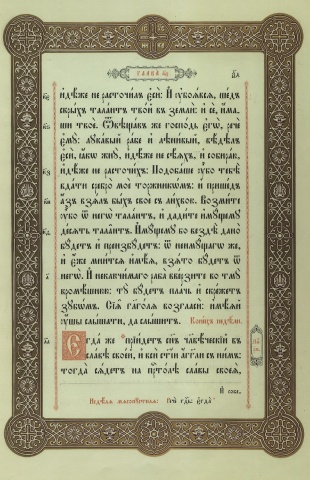 ГЛАВА́ к҃е
и҆дѣ́же не расточи́лъ є҆сѝ. И҆ ᲂу҆боѧ́всѧ, ше́дъ
скры́хъ тала́нтъ тво́й въ землѝ: и҆ сѐ, и҆́ма-
ши твоѐ. Ѿвѣща́въ же госпо́дь є҆гѡ̀, речѐ
є҆мꙋ̀: лꙋка́вый ра́бе и҆ лѣни́вый, вѣ́дѣлъ
є҆сѝ, ꙗ҆́кѡ жнꙋ̀, и҆дѣ́же не сѣ́ѧхъ, и҆ собира́ю,
и҆дѣ́же не расточи́хъ: Подоба́ше ᲂу҆̀бо тебѣ̀
вда́ти сребро̀ моѐ торжникѡ́мъ: и҆ прише́дъ
а҆́зъ взѧ́лъ бы́хъ своѐ съ ли́хвою. Возми́те
ᲂу҆̀бо ѿ негѡ̀ тала́нтъ, и҆ дади́те и҆мꙋ́щемꙋ
де́сѧть тала̑нтъ. И҆мꙋ́щемꙋ бо вездѣ̀ дано̀
бꙋ́детъ и҆ преизбꙋ́детъ: ѿ неимꙋ́щагѡ же,
и҆ є҆́же мни́тсѧ и҆мѣ́ѧ, взѧ́то бꙋ́детъ ѿ
негѡ̀. И҆ неключи́маго раба̀ вве́рзите во тмꙋ̀
кромѣ́шнюю: тꙋ̀ бꙋ́детъ пла́чь и҆ скре́жетъ
зꙋбѡ́мъ. Сїѧ̑ глаго́лѧ возгласѝ: и҆мѣ́ѧй
ᲂу҆́шы слы́шати, да слы́шитъ. Коне́цъ недѣ́ли.
Є҆гда́ же прїи́детъ сн҃ъ чл҃вѣ́ческїй въ
сла́вѣ свое́й, и҆ всѝ ст҃і́и а҆́гг҃ли съ ни́мъ:
тогда̀ сѧ́детъ на прⷭ҇то́лѣ сла́вы своеѧ̀,
И҆ собе-
Недѣ́лѧ мѧсопꙋ́стнаѧ: Речѐ гдⷭ҇ь: є҆гда̀